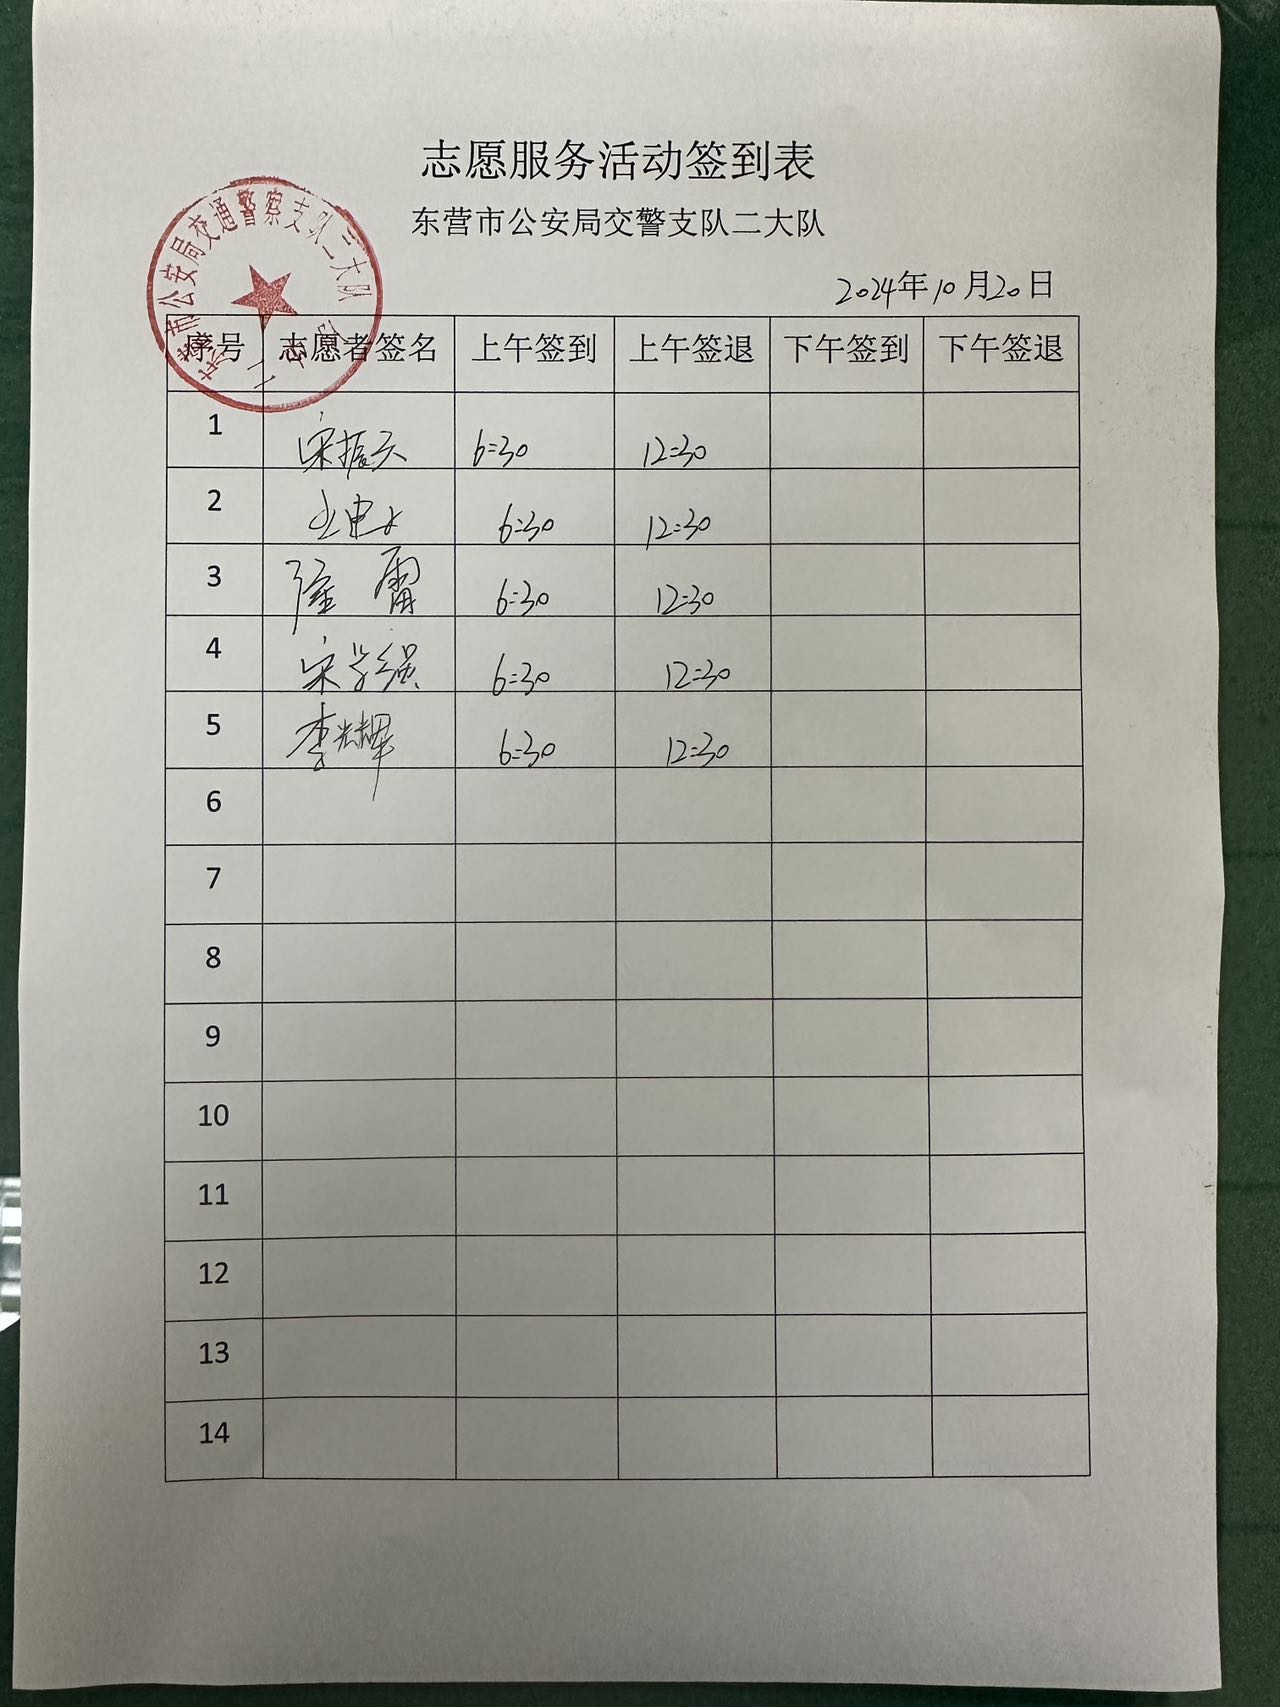 志愿服务活动签到表
东营市公安局交警支队二大队
东营市公安局交通警察支队二大队
2024年10月20日
序号 志愿者签名 上午签到 上午签退 下午签到 下午签退
1 宋振天 6:30 12:30
2 6:30 12:30
3 6:30 12:30
4 宋 6:30 12:30
5 李光辉 6:30 12:30
6
7
8
9
10
11
12
13
14